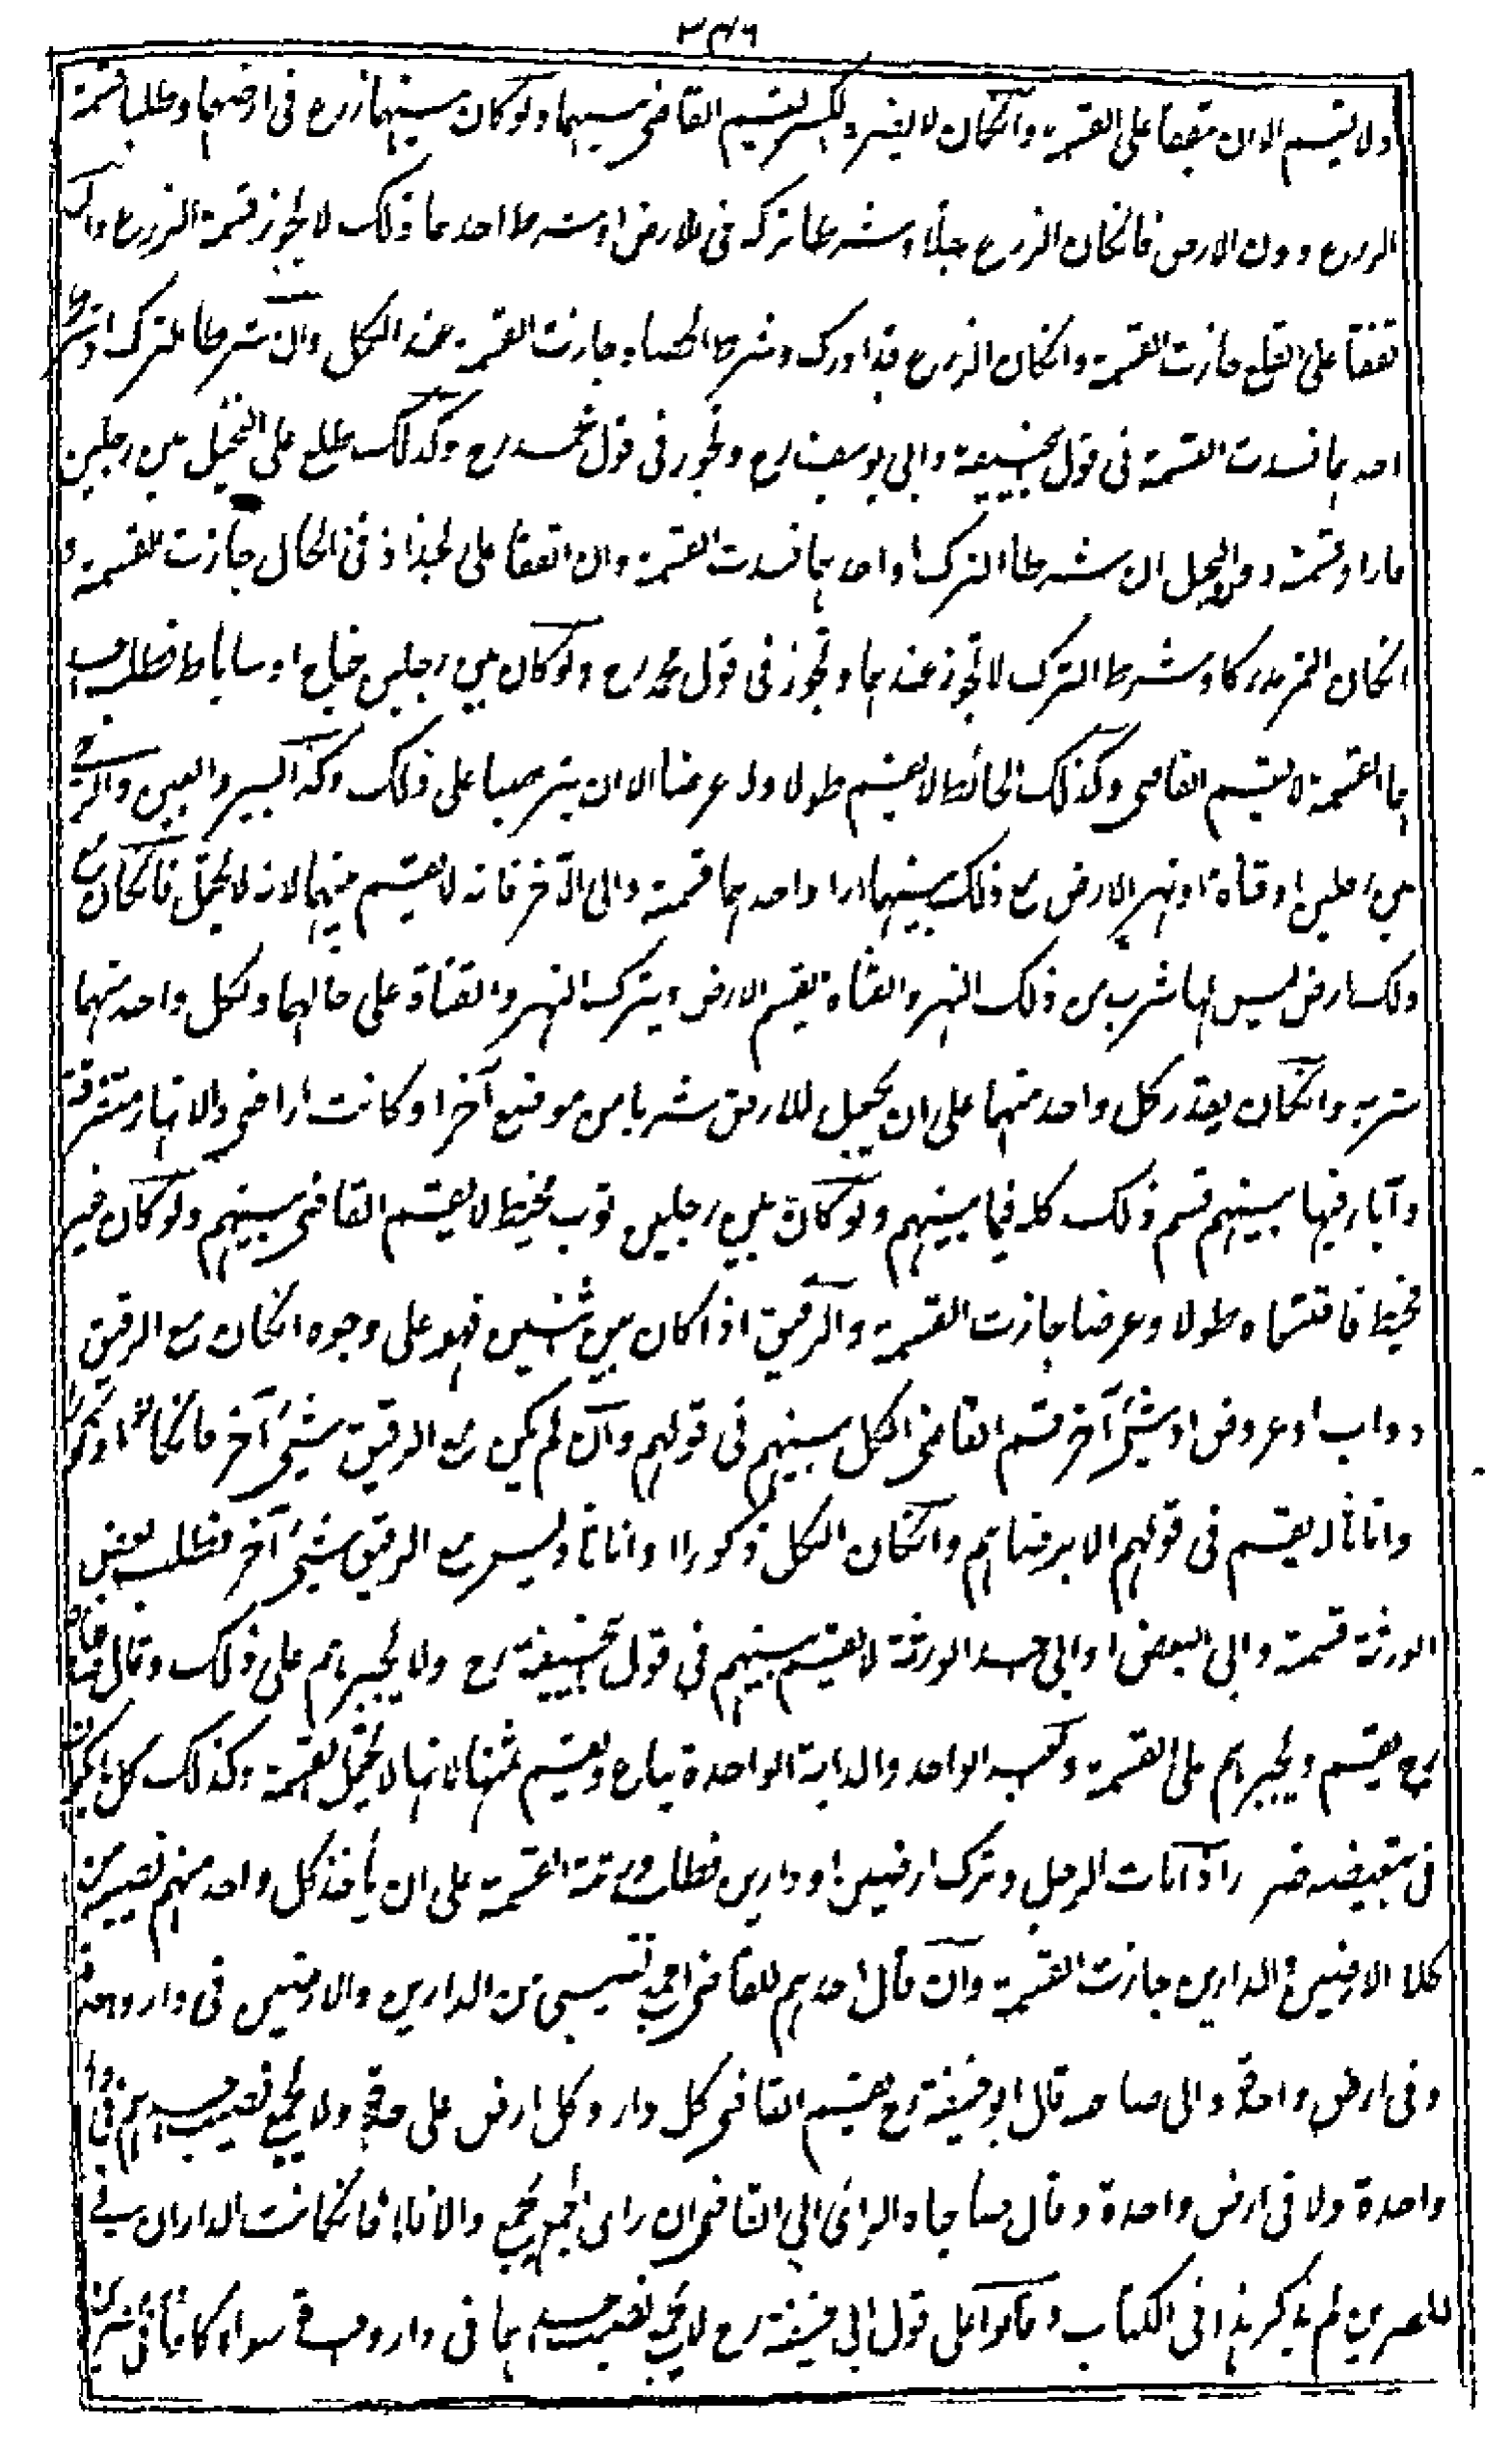 ٣٤٦
ولا يقسم الا ان يتفقا على القسمة وانكان لا يضره الكسر يقسم القاضى بينهما ولو كان بينهما زرع فى ارضهما وطلبا قسمة
الزرع دون الارض فانكان الزرع بقلا وشرطا تركه فى الارض او شرط احدهما ذلك لا يجوز قسمة الزرع وان
تفقا على القلع جازت القسمة وانكان الزرع قد ادرك وشرطا الحصاد جازت القسمة عند الكل وان شرطا الترك او شرط
احدهما فسدت القسمة فى قول ابيحنيفة وابى يوسف رح ويجوز فى قول محمد رح وكذلك طلع على النخيل بين رجلين
فارادا قسمته دون النخل ان شرطا الترك او احدهما فسدت القسمة وان اتفقا على الجذاذ فى الحال جازت القسمة و
انكان الثمر مدركا وشرطا الترك لا تجوز عندهما وتجوز فى قول محمد رح ولو كان بين رجلين جناح او ساباط فطلب احد
هما القسمة لا يقسم القاضى وكذلك الحائط لا يقسم طولا ولا عرضا الا ان يتراضيا على ذلك وكذا البير والعين والرحى
بين رجلين او قناة او نهر الارض مع ذلك بينهما اراد احدهما قسمة وابى الآخر فانه لا يقسم بينهما لانه لا يحتمل فانكان مع
ذلك ارض ليس لها شرب من ذلك النهر والقناة يقسم الارض ويترك النهر والقناة على حالهما ولكل واحد منهما
شربه وانكان يقدر كل واحد منهما على ان يجعل للارض شربا من موضع آخر او كانت اراضى والانهار متفرقة
وآبار فيها بينهم قسم ذلك كله فيما بينهم ولو كان بين رجلين ثوب مخيط لا يقسم القاضى بينهم ولو كان غير
مخيط فاقتسماه طولا وعرضا جازت القسمة والرقيق اذا كان بين اثنين فهو على وجوه انكان مع الرقيق
دواب او عروض او شئ آخر قسم القاضى الكل بينهم فى قولهم وان لم يكن مع الرقيق شئ آخر فانكانوا ذكورا
واناثا لا يقسم فى قولهم الا برضاهم وانكان الكل ذكورا او اناثا وليس مع الرقيق شئ آخر فطلب بعض
الورثة قسمة وابى البعض او ابى احد الورثة لا يقسم بينهم فى قول ابيحنيفة رح ولا يجبرهم على ذلك وقال صاحباه
رح يقسم ويجبرهم على القسمة والعبد الواحد والدابة الواحدة يباع ويقسم ثمنها لانها لا يحتمل القسمة وكذلك كل ما يكون
فى تبعيضه ضرر اذا مات الرجل وترك ارضين او دارين فطلب ورثته القسمة على ان يأخذ كل واحد منهم نصيبه من
كلا الارضين والدارين جازت القسمة وان قال احدهم للقاضى اجمع نصيبى من الدارين والارضين فى دار واحدة
وفى ارض واحدة وابى صاحبه قال ابو حنيفة رح يقسم القاضى كل دار وكل ارض على حدة ولا يجمع نصيب احدهم فى دار
واحدة ولا فى ارض واحدة وقال صاحباه الرأى الى القاضى ان رأى الجمع يجمع والا فلا فانكانت الداران فى
المصرين لم يذكر هذا فى الكتاب وقالوا على قول ابى حنيفة رح لا يجمع نصيب احدهما فى دار واحدة سواء كانتا فى مصرين